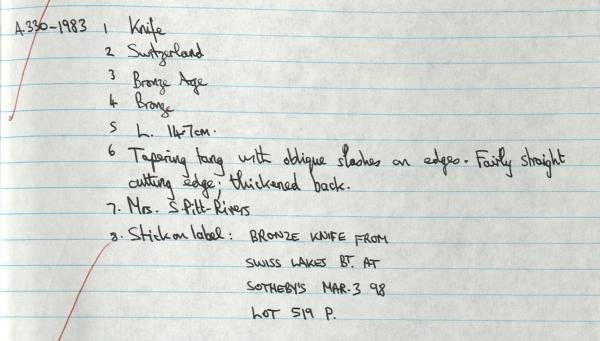 A.330-1983 1 Knife
2 Switzerland
3 Bronze Age
4 Bronze
5 L. 14.7cm.
6 Tapering tang with oblique slashes on edges. Fairly straight
cutting edge; thickened back.
7. Mrs. S. Pitt-Rivers
8. Stick on label: BRONZE KNIFE FROM
SWISS LAKES BT. AT
SOTHEBY'S MAR. 3 98
LOT 519 P.